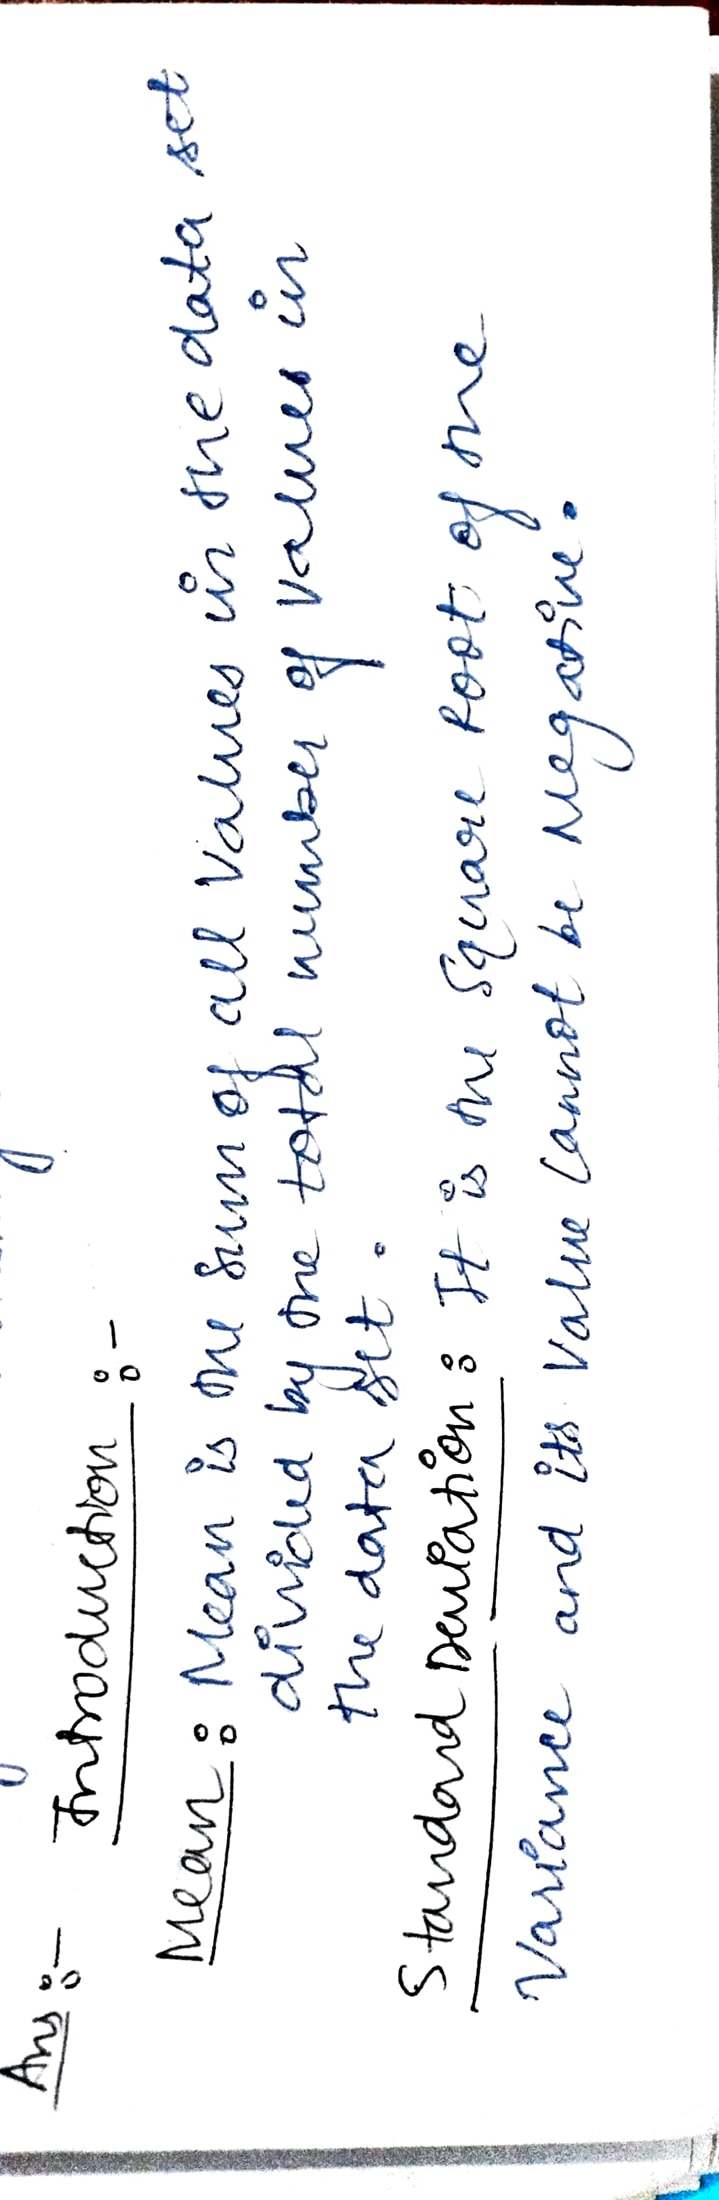 Ans :-
Introduction :-
Mean : Mean is the sum of all values in the data set
divided by the total number of values in
the data set.
Standard Deviation : It is the Square Root of the
Variance and its value cannot be Negative.